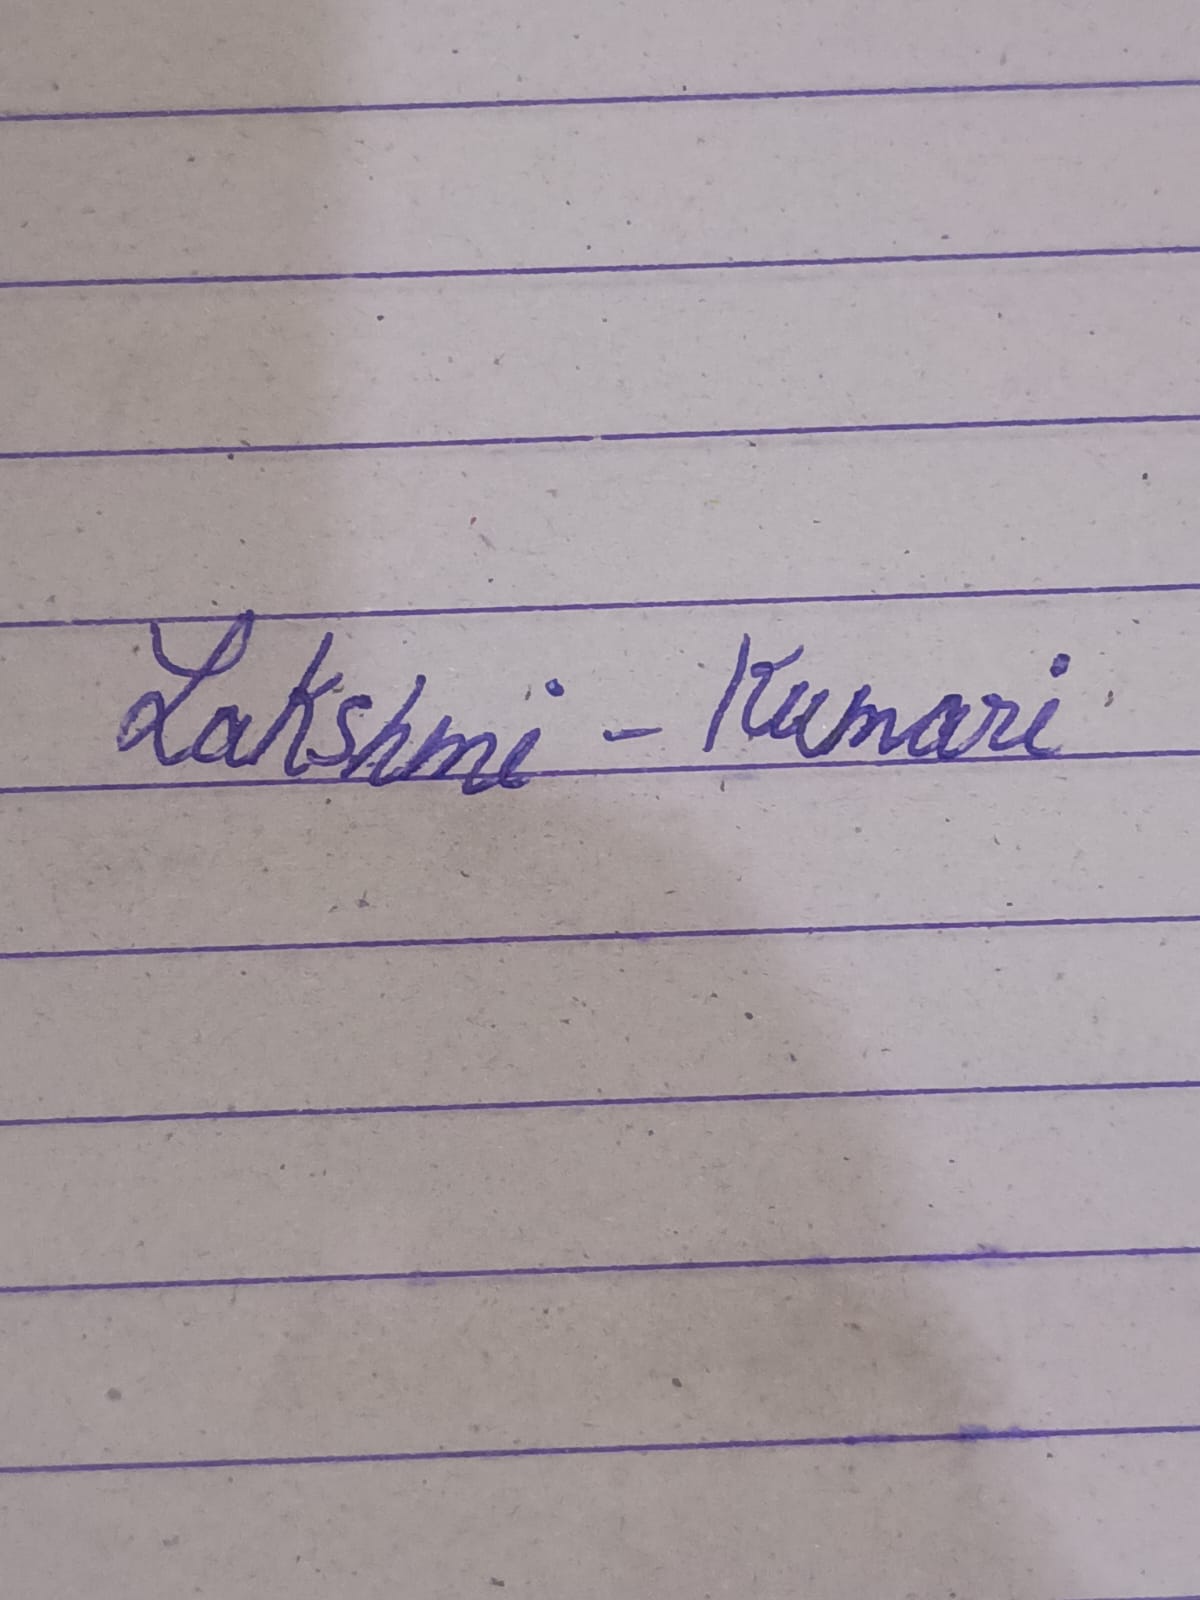 Lakshmi - Kumari